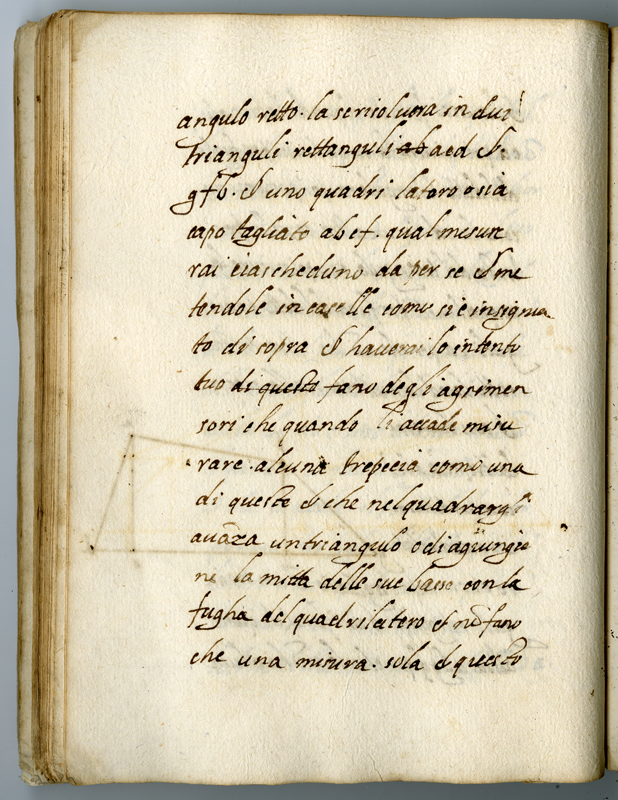 angulo retto. la se risoluera in dui
trianguli rettanguli ab aed &
gfb. & uno quadri latoro o sia
capo tagliato abef. qual mesure
rai ciascheduno da per se & me
tendole in caselle como si è insignia
to di sopra & haverai lo intento
tuo di questo fano degli agrimen
sori che quando li accade misu
rare alcuna trepecia como una
di queste & che nel quadrargli
avāza un triangulo o di agiungie
ne la mitta delle sue base con la
fugha del quadrilatero & nō fano
che una misura. sola & questo